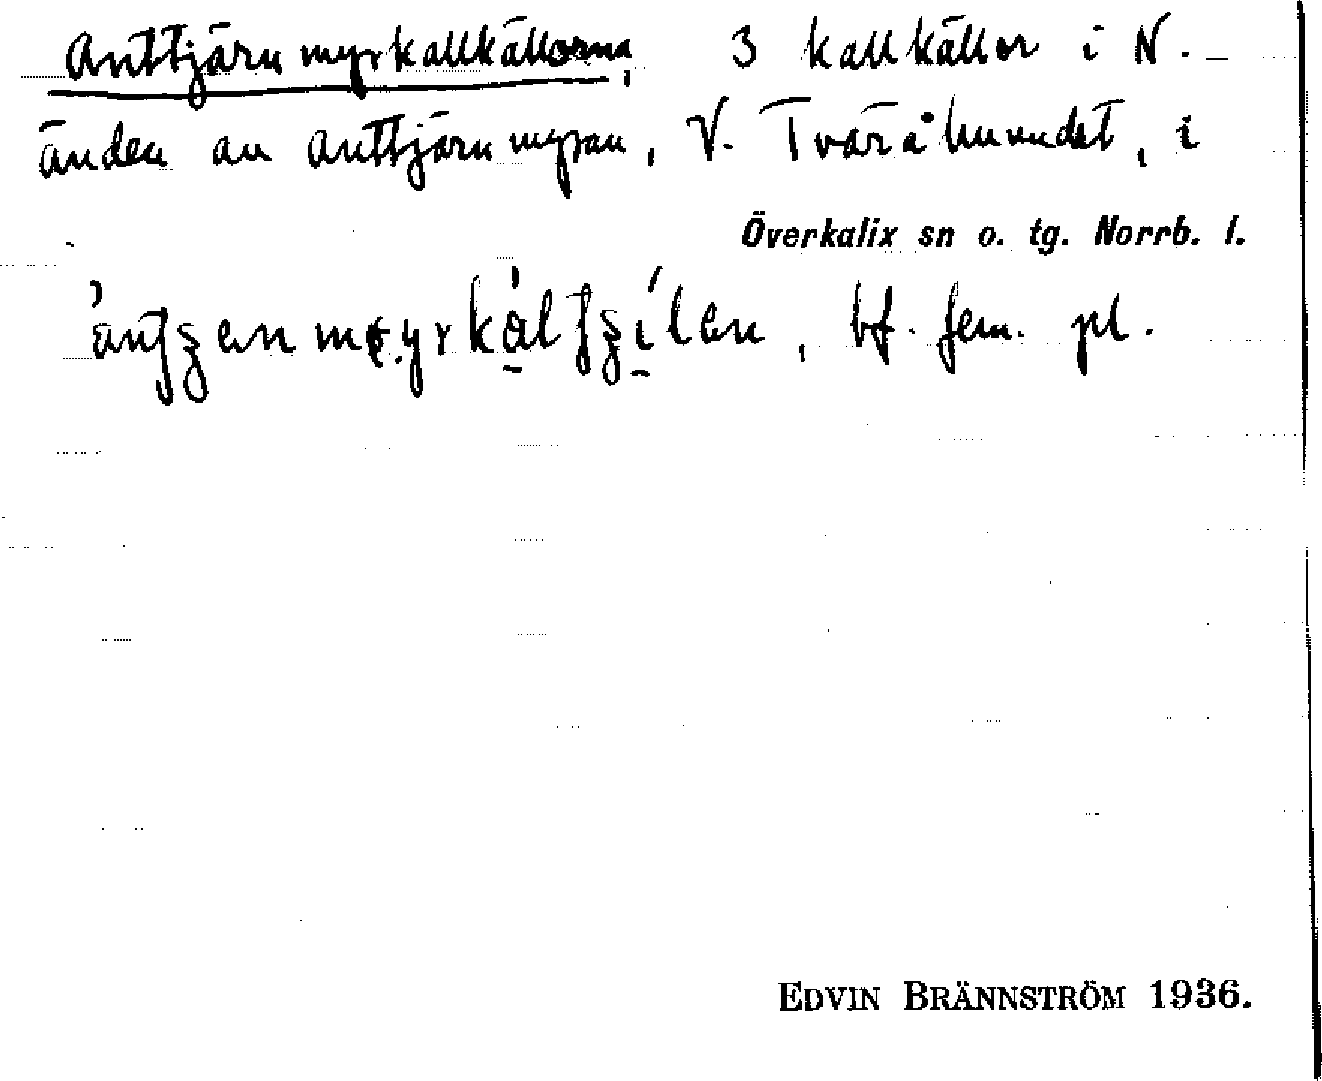 Anttjärnmyrkallkällorna, 3 kallkällor i N.
änden av Anttjärnmyran, V. Tväråhuvudet, i
Överkalix sn o. tg. Norrb. l.
bf. fem. pl.
EDVIN BRÄNNSTRÖM 1936.